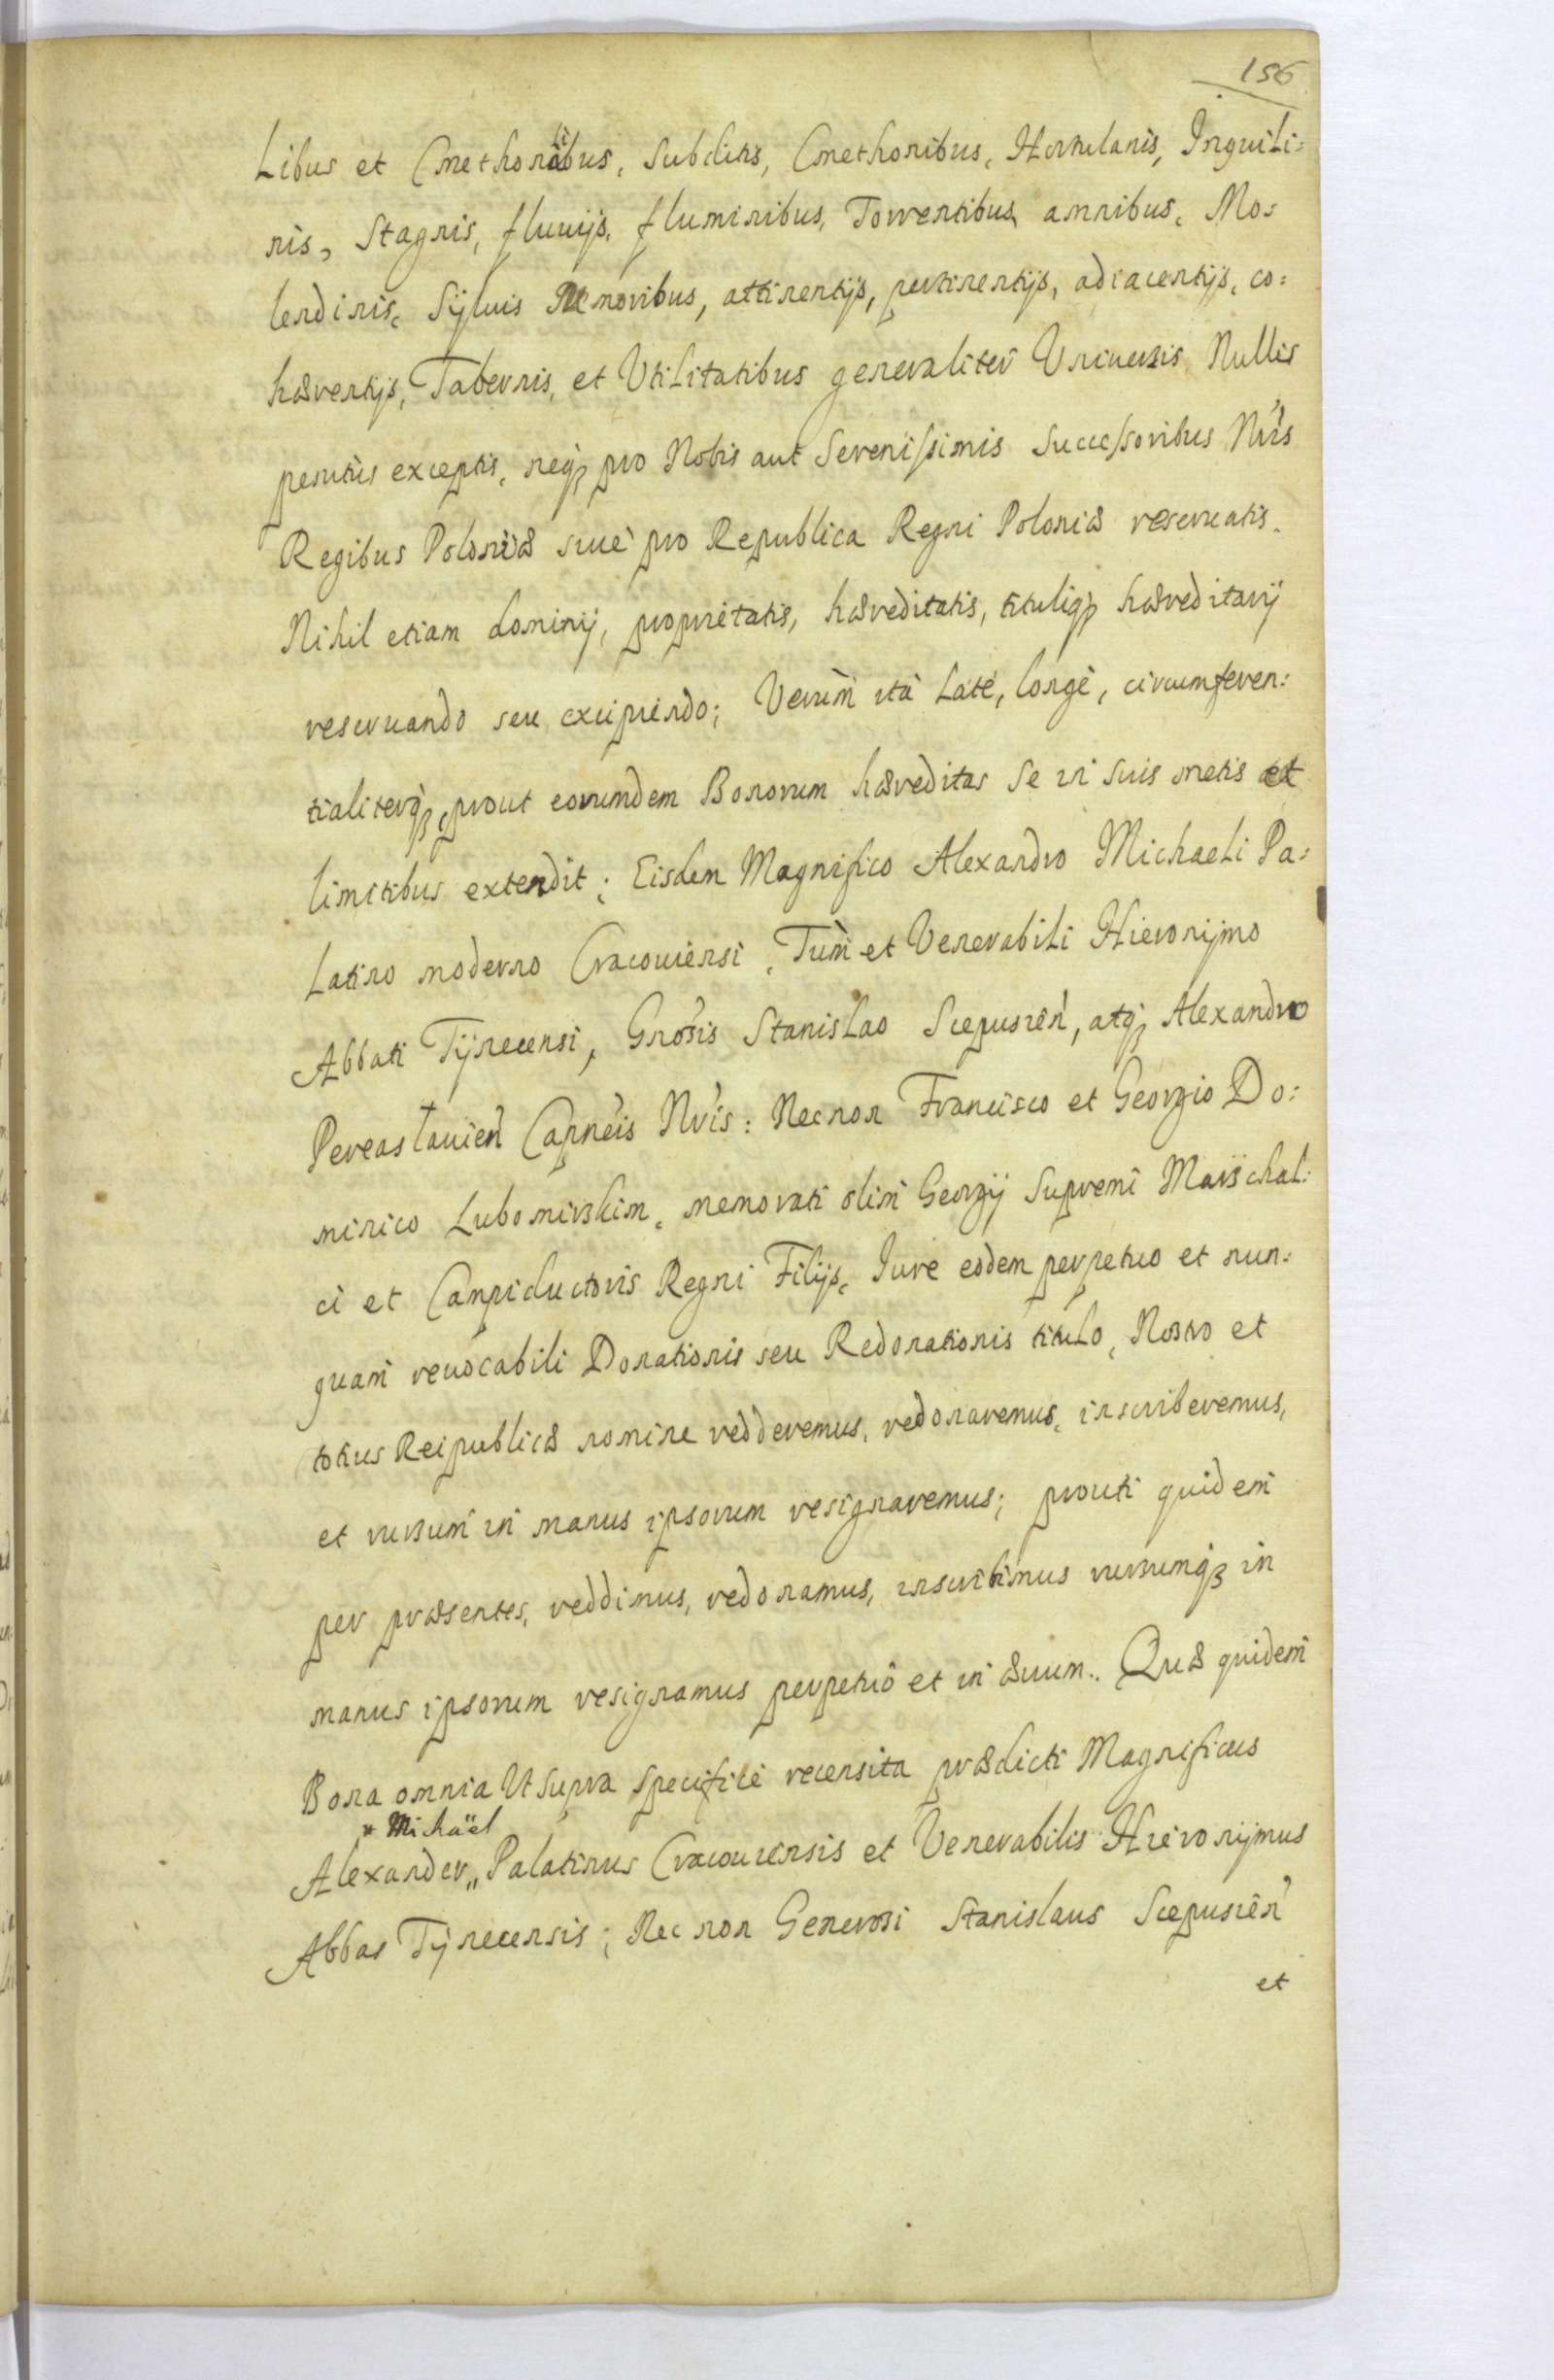 156
Libus et Cmethonalibus, Subditis, Cmethonibus, Hortulanis, Inquili:
nis, Stagnis, fluuijs, fluminibus, Torrentibus, amnibus, Mo:
lendinis, Syluis Nemoribus, attinentijs, pertinentijs, adiacentijs, co:
hærentijs, Tabernis, et Vtilitatibus generaliter Vniuersis Nullis
penitùs exceptis, neq₃ pro Nobis aut Serenissimis Successoribus Nr̃is
Regibus Poloniæ siuè pro Republica Regni Poloniæ reseruatis.
Nihil etiam dominij, proprietatis, hæreditatis, tituliq₃ hæreditarij
reseruando seu excipiendo; Verùm ità Latè, longè, circumferen:
tialiterq₃, prout eorumdem Bonorum hæreditas se in suis metis et
limitibus extendit; Eisdem Magnifico Alexandro Michaeli Pa:
Latino moderno Cracouiensi, Tùm et Venerabili Hieronijmo
Abbati Tÿnecensi, Gnõsis StanisLao Scepusien̄, atq₃ Alexandro
PereasLauien̄ Capnẽis Nr̃is: Necnon Francisco et Georgio Do:
minico Lubomirskim, memorati olim Georgij Supremi Marschal:
ci et Campiductoris Regni Filijs, Iure eodem perpetuo et nun:
quam reuocabili Donationis seu Redonationis tituLo, Nostro et
totius Reipublicæ nomine redderemus, redonaremus, inscriberemus,
et rursum in manus ipsorum resignaremus; prouti quidem
per præsentes, reddimus, redonamus, inscribimus rursumq₃ in
manus ipsorum resignamus perpetuò et in æuum. Quæ quidem
Bona omnia Vt supra specificè recensita prædicti Magnificus
* Michaël
Alexander,, Palatinus Cracouiensis et Venerabilis Hieronijmus
Abbas Tÿnecensis; Nec non Generosi Stanislaus Scepusien̄
et